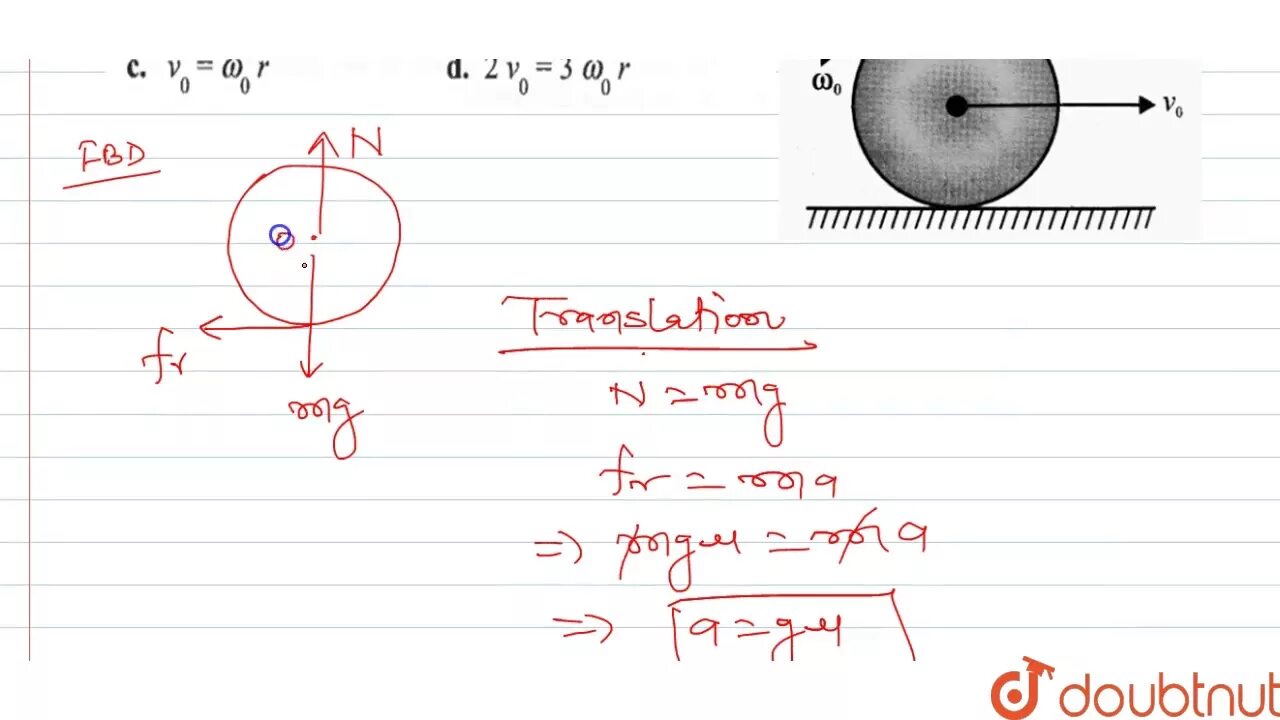 c. v₀ = ω₀ r
d. 2 v₀ = 3 ω₀ r
ω₀
v₀
FBD
N
fr
mg
Translation
N = mg
fr = ma
=> mgμ = ma
=> a = gμ
doubtnut